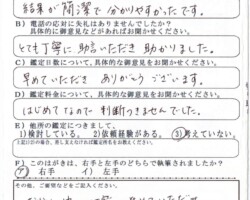 結果が簡潔で分かりやすかったです。
B) 電話の応対に失礼はありませんでしたか?
具体的な御意見などがあればお聞かせください。
とても丁寧に助言いただき助かりました。
C) 鑑定日数について、具体的な御意見をお聞かせください。
早めていただき ありがとうございます。
D) 鑑定料金について、具体的な御意見をお聞かせください。
はじめてなので判断つきませんでした。
E) 他所の鑑定につきまして、
1)検討している。 2)依頼経験がある。 3)考えていない。
F) このはがきは、右手と左手のどちらで執筆されましたか?
ア) 右手 イ) 左手
その他、ご要望などをご記入ください。